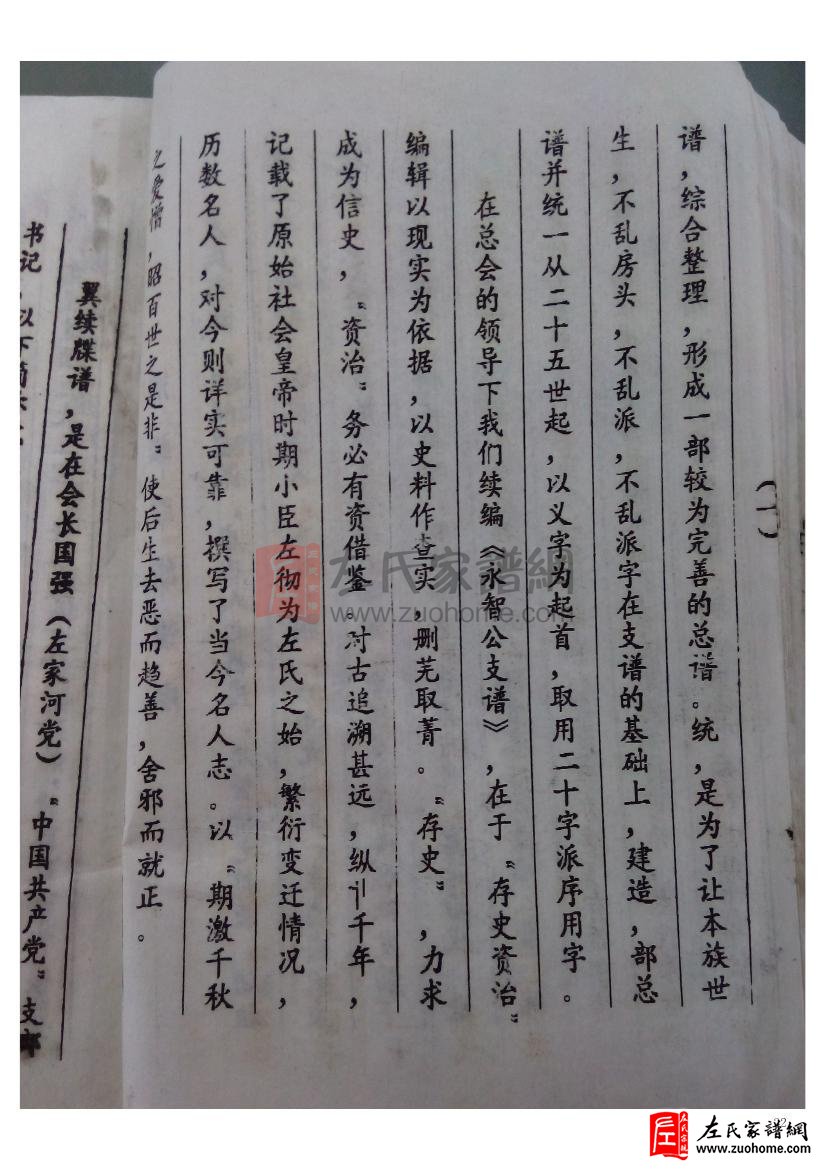 （一）
谱，综合整理，形成一部较为完善的总谱。统，是为了让本族世
生，不乱房头，不乱派，不乱派字在支谱的基础上，建造，部总
谱并统一从二十五世起，以义字为起首，取用二十字派序用字。
在总会的领导下我们续编《永智公支谱》，在于“存史资治”
编辑以现实为依据，以史料作查实，删芜取菁。“存史”，力求
成为信史，“资治”务必有资借鉴。对古追溯甚远，纵千年，
记载了原始社会皇帝时期小臣左彻为左氏之始，繁衍变迁情况，
历数名人，对今则详实可靠，撰写了当今名人志。以“期激千秋
之爱憎，昭百世之是非”使后生去恶而趋善，舍邪而就正。
翼续牒谱，是在会长国强（左家河党）“中国共产党”支部
书记，以下简
左氏家譜網
www.zuohome.com
左氏家譜網
www.zuohome.com